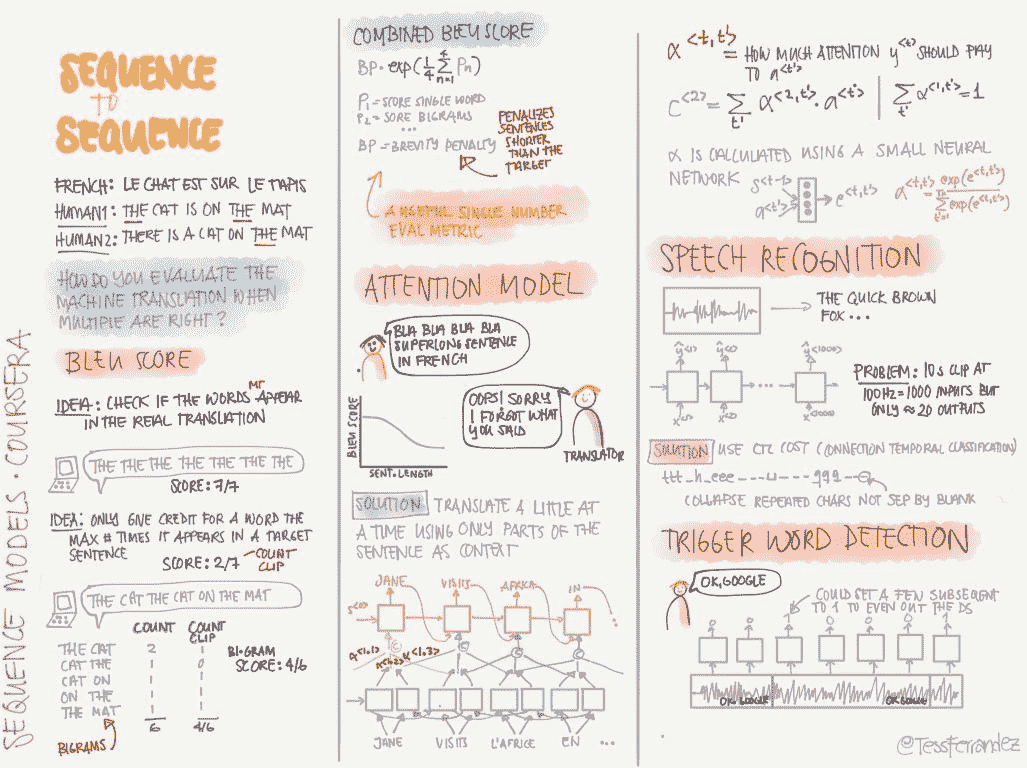 SEQUENCE MODELS · COURSERA
SEQUENCE
TO
SEQUENCE
FRENCH: LE CHAT EST SUR LE TAPIS
HUMAN1: THE CAT IS ON THE MAT
HUMAN2: THERE IS A CAT ON THE MAT
HOW DO YOU EVALUATE THE
MACHINE TRANSLATION WHEN
MULTIPLE ARE RIGHT?
BLEU SCORE
IDEA: CHECK IF THE WORDS MT APPEAR
IN THE REAL TRANSLATION
THE THE THE THE THE THE THE
SCORE: 7/7
IDEA: ONLY GIVE CREDIT FOR A WORD THE
MAX # TIMES IT APPEARS IN A TARGET
SENTENCE
SCORE: 2/7
COUNT
CLIP
THE CAT THE CAT ON THE MAT
COUNT COUNT CLIP
THE CAT 2 1
CAT THE 1 0
CAT ON 1 1
ON THE 1 1
THE MAT 1 1
6 4/6
BI-GRAM
SCORE: 4/6
BIGRAMS
COMBINED BLEU SCORE
BP · exp(1/4 4∑n=1 Pn)
P1 = SCORE SINGLE WORD
P2 = SORE BIGRAMS
...
BP = BREVITY PENALTY
PENALIZES
SENTENCES
SHORTER
THAN THE
TARGET
A USEFUL SINGLE NUMBER
EVAL METRIC
ATTENTION MODEL
BLA BLA BLA BLA
SUPERLONG SENTENCE
IN FRENCH
OOPS! SORRY
I FORGOT WHAT
YOU SAID
TRANSLATOR
BLEU SCORE
SENT. LENGTH
SOLUTION TRANSLATE A LITTLE AT
A TIME USING ONLY PARTS OF THE
SENTENCE AS CONTEXT
JANE VISITS AFRICA IN
S<0>
C C C
α<1,1> α<1,2> α<1,3>
JANE VISITS L'AFRICE EN ...
α<t,t'> = HOW MUCH ATTENTION y<t> SHOULD PLAY
TO a<t'>
C<2> = ∑t' α<2,t'> · a<t'> | ∑t' α<1,t'> = 1
α IS CALCULATED USING A SMALL NEURAL
NETWORK
s<t-1>
a<t'>
e<t,t'>
a<t,t'> = exp(e<t,t'>) / Tx∑t'=1 exp(e<t,t'>)
SPEECH RECOGNITION
THE QUICK BROWN
FOX ...
ŷ<1> ŷ<2> ŷ<1000>
...
x<1> x<2> x<1000>
PROBLEM: 10s CLIP AT
100Hz = 1000 INPUTS BUT
ONLY ≈ 20 OUTPUTS
SOLUTION USE CTC COST (CONNECTION TEMPORAL CLASSIFICATION)
ttt_h_eee---⊔---qqq--
COLLAPSE REPEATED CHARS NOT SEP BY BLANK
TRIGGER WORD DETECTION
OK, GOOGLE
COULD SET A FEW SUBSEQUENT
TO 1 TO EVEN OUT THE DS
0 0 1 0 0 0 1
OK GOOGLE OK GOOGLE
@TessFerrandez